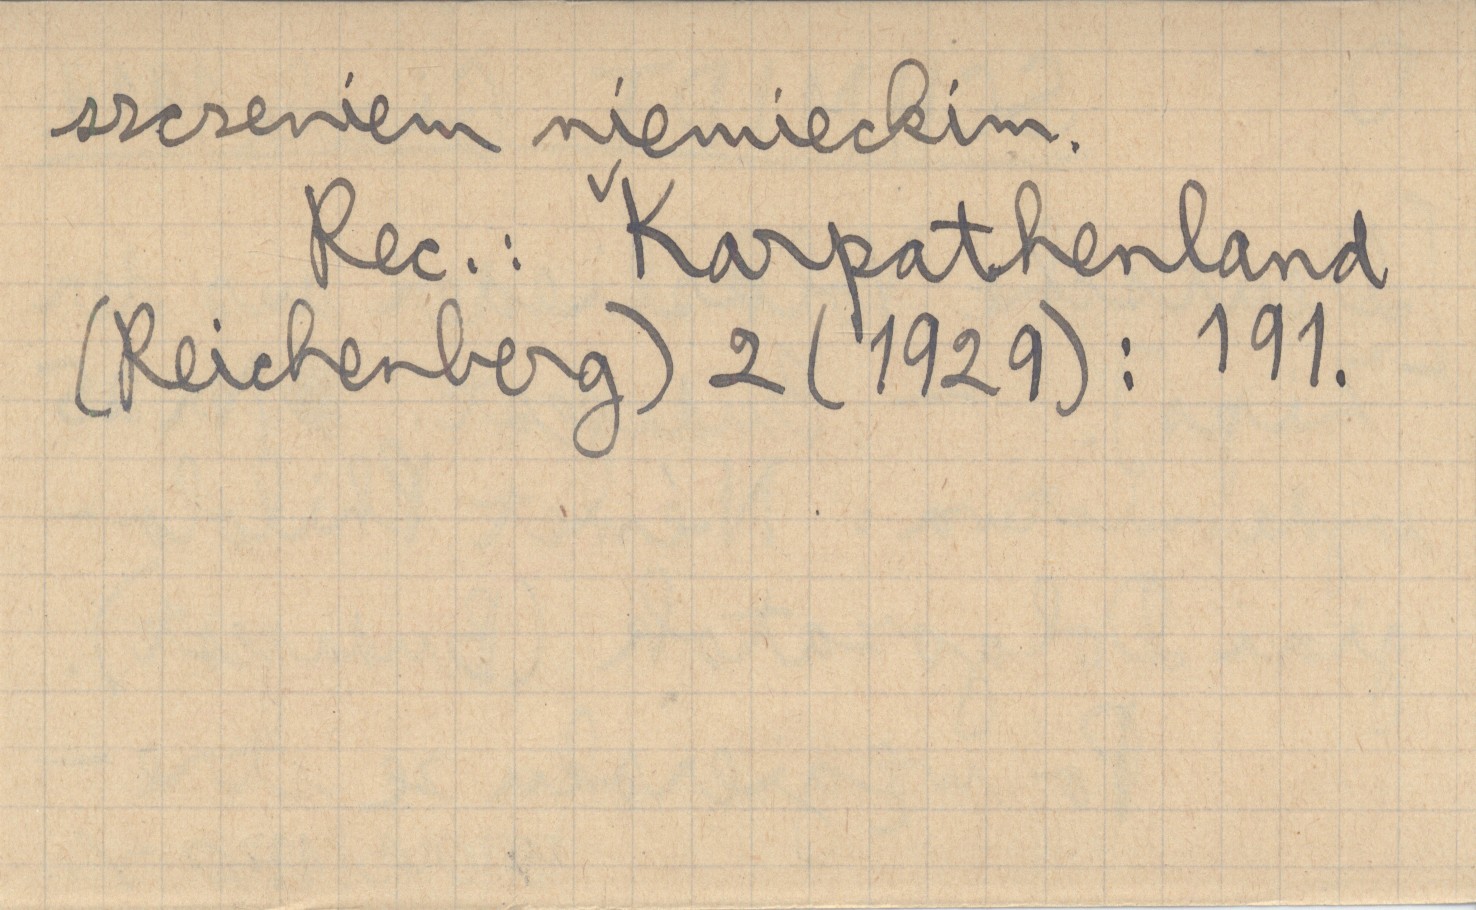 szczeniem niemieckim.
Rec.: ˅Karpathenland
(Reichenberg) 2 (1929): 191.